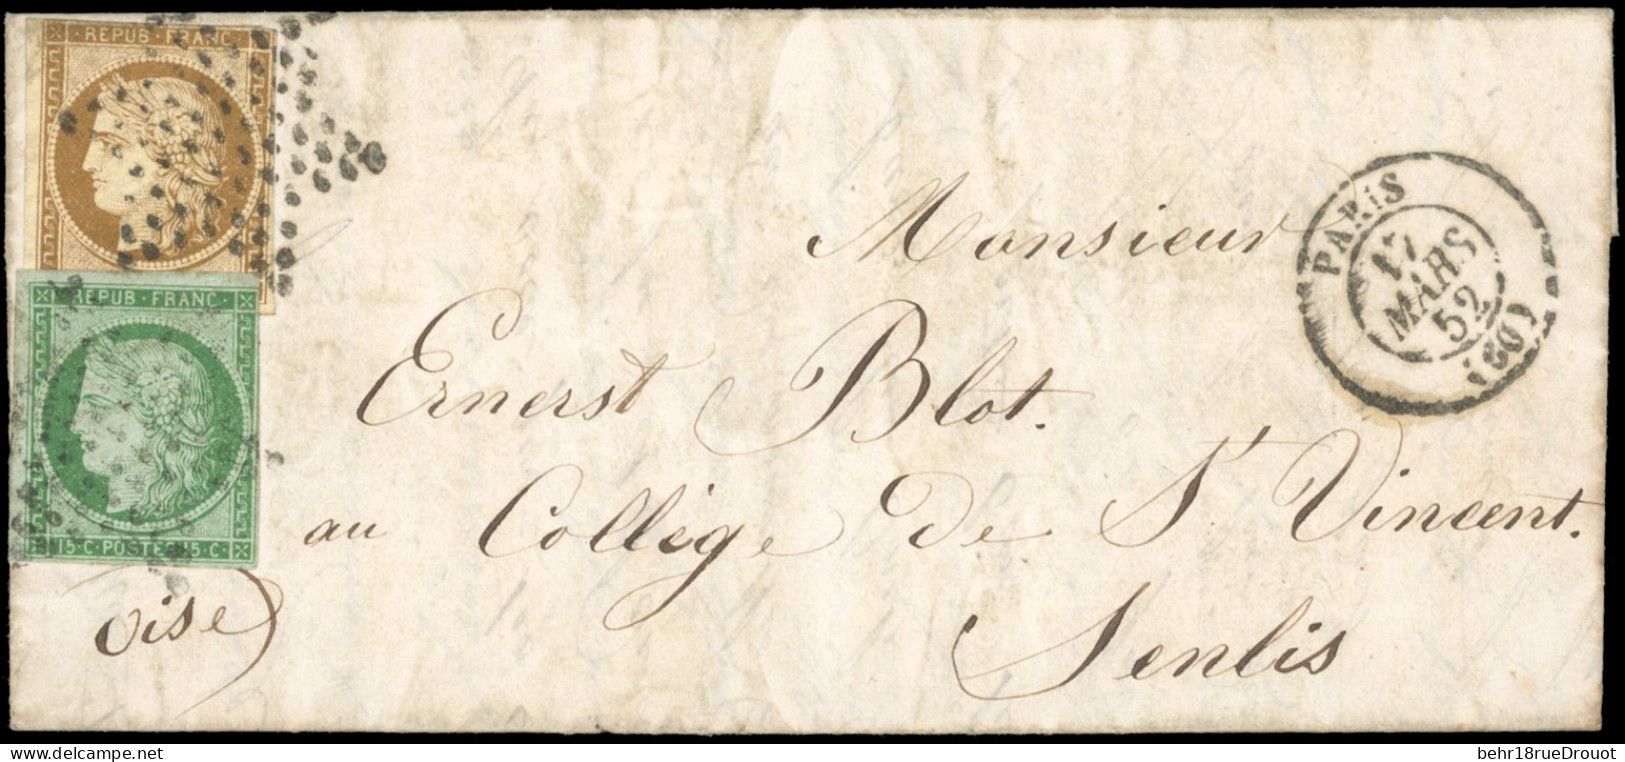 REPUB · FRANC
REPUB · FRANC
15·C·POSTES 15·C·
PARIS
17
MARS
52
(60)
Monsieur
Ernerst Blot.
au Collége de St Vincent.
Senlis
Oise
www.delcampe.net
behr18rueDrouot